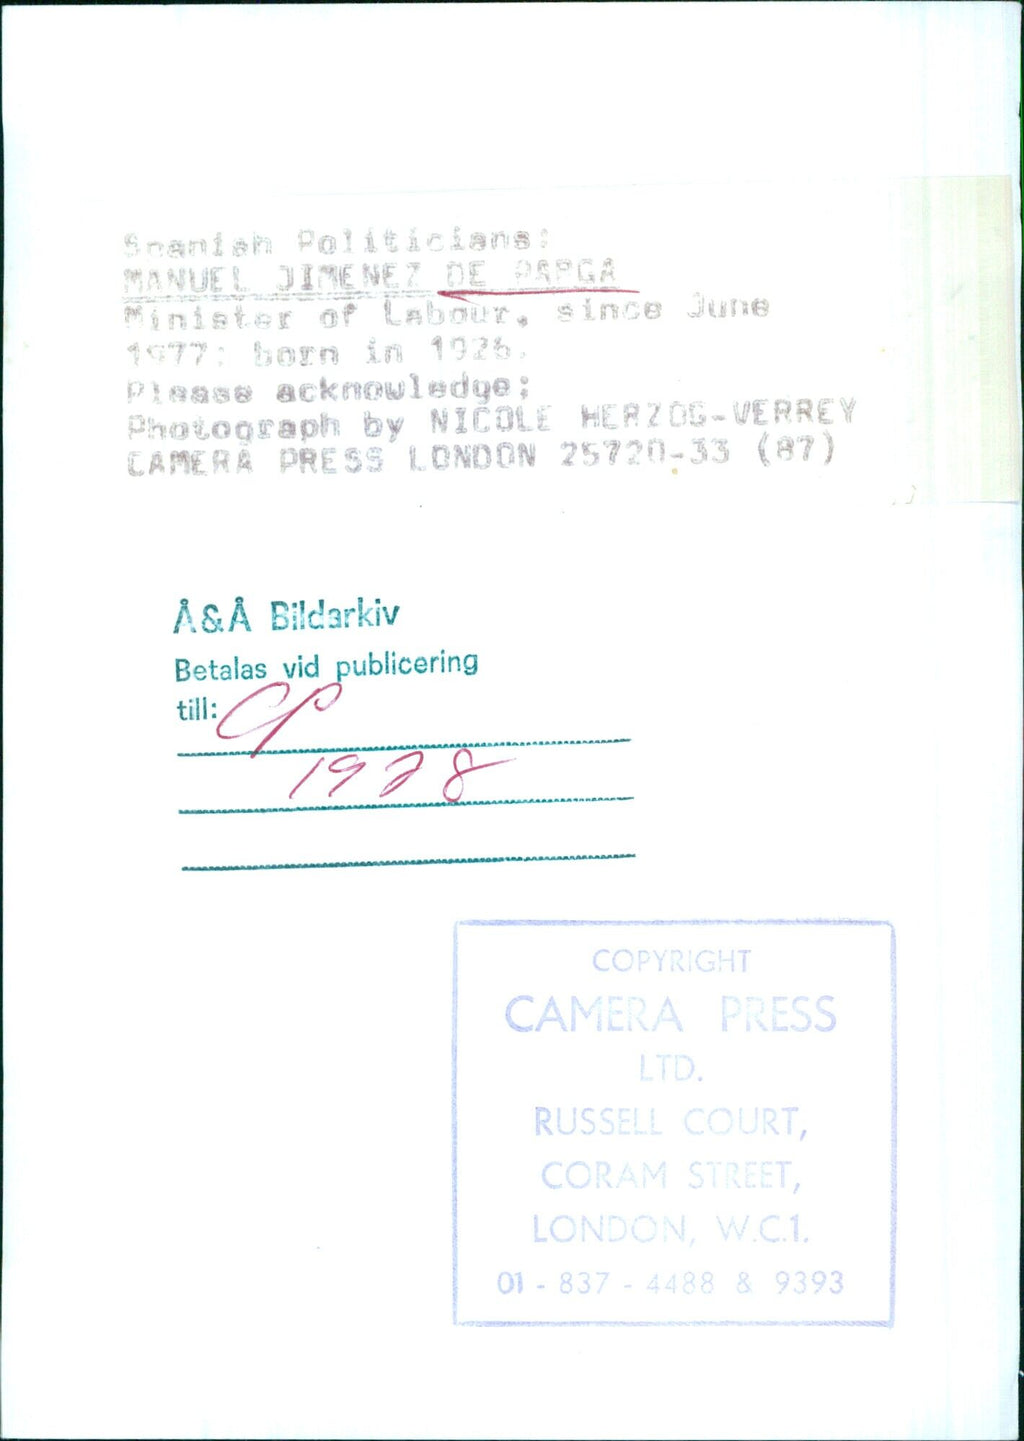 Spanish Politicians:
MANUEL JIMENEZ DE PARGA
Minister of Labour, since June
1977: born in 1926.
Please acknowledge:
Photograph by NICOLE HERZOG-VERREY
CAMERA PRESS LONDON 25720-33 (87)
Å&Å Bildarkiv
Betalas vid publicering
till: CP
1978
COPYRIGHT
CAMERA PRESS
LTD.
RUSSELL COURT,
CORAM STREET,
LONDON, W.C.1.
01 - 837 - 4488 & 9393